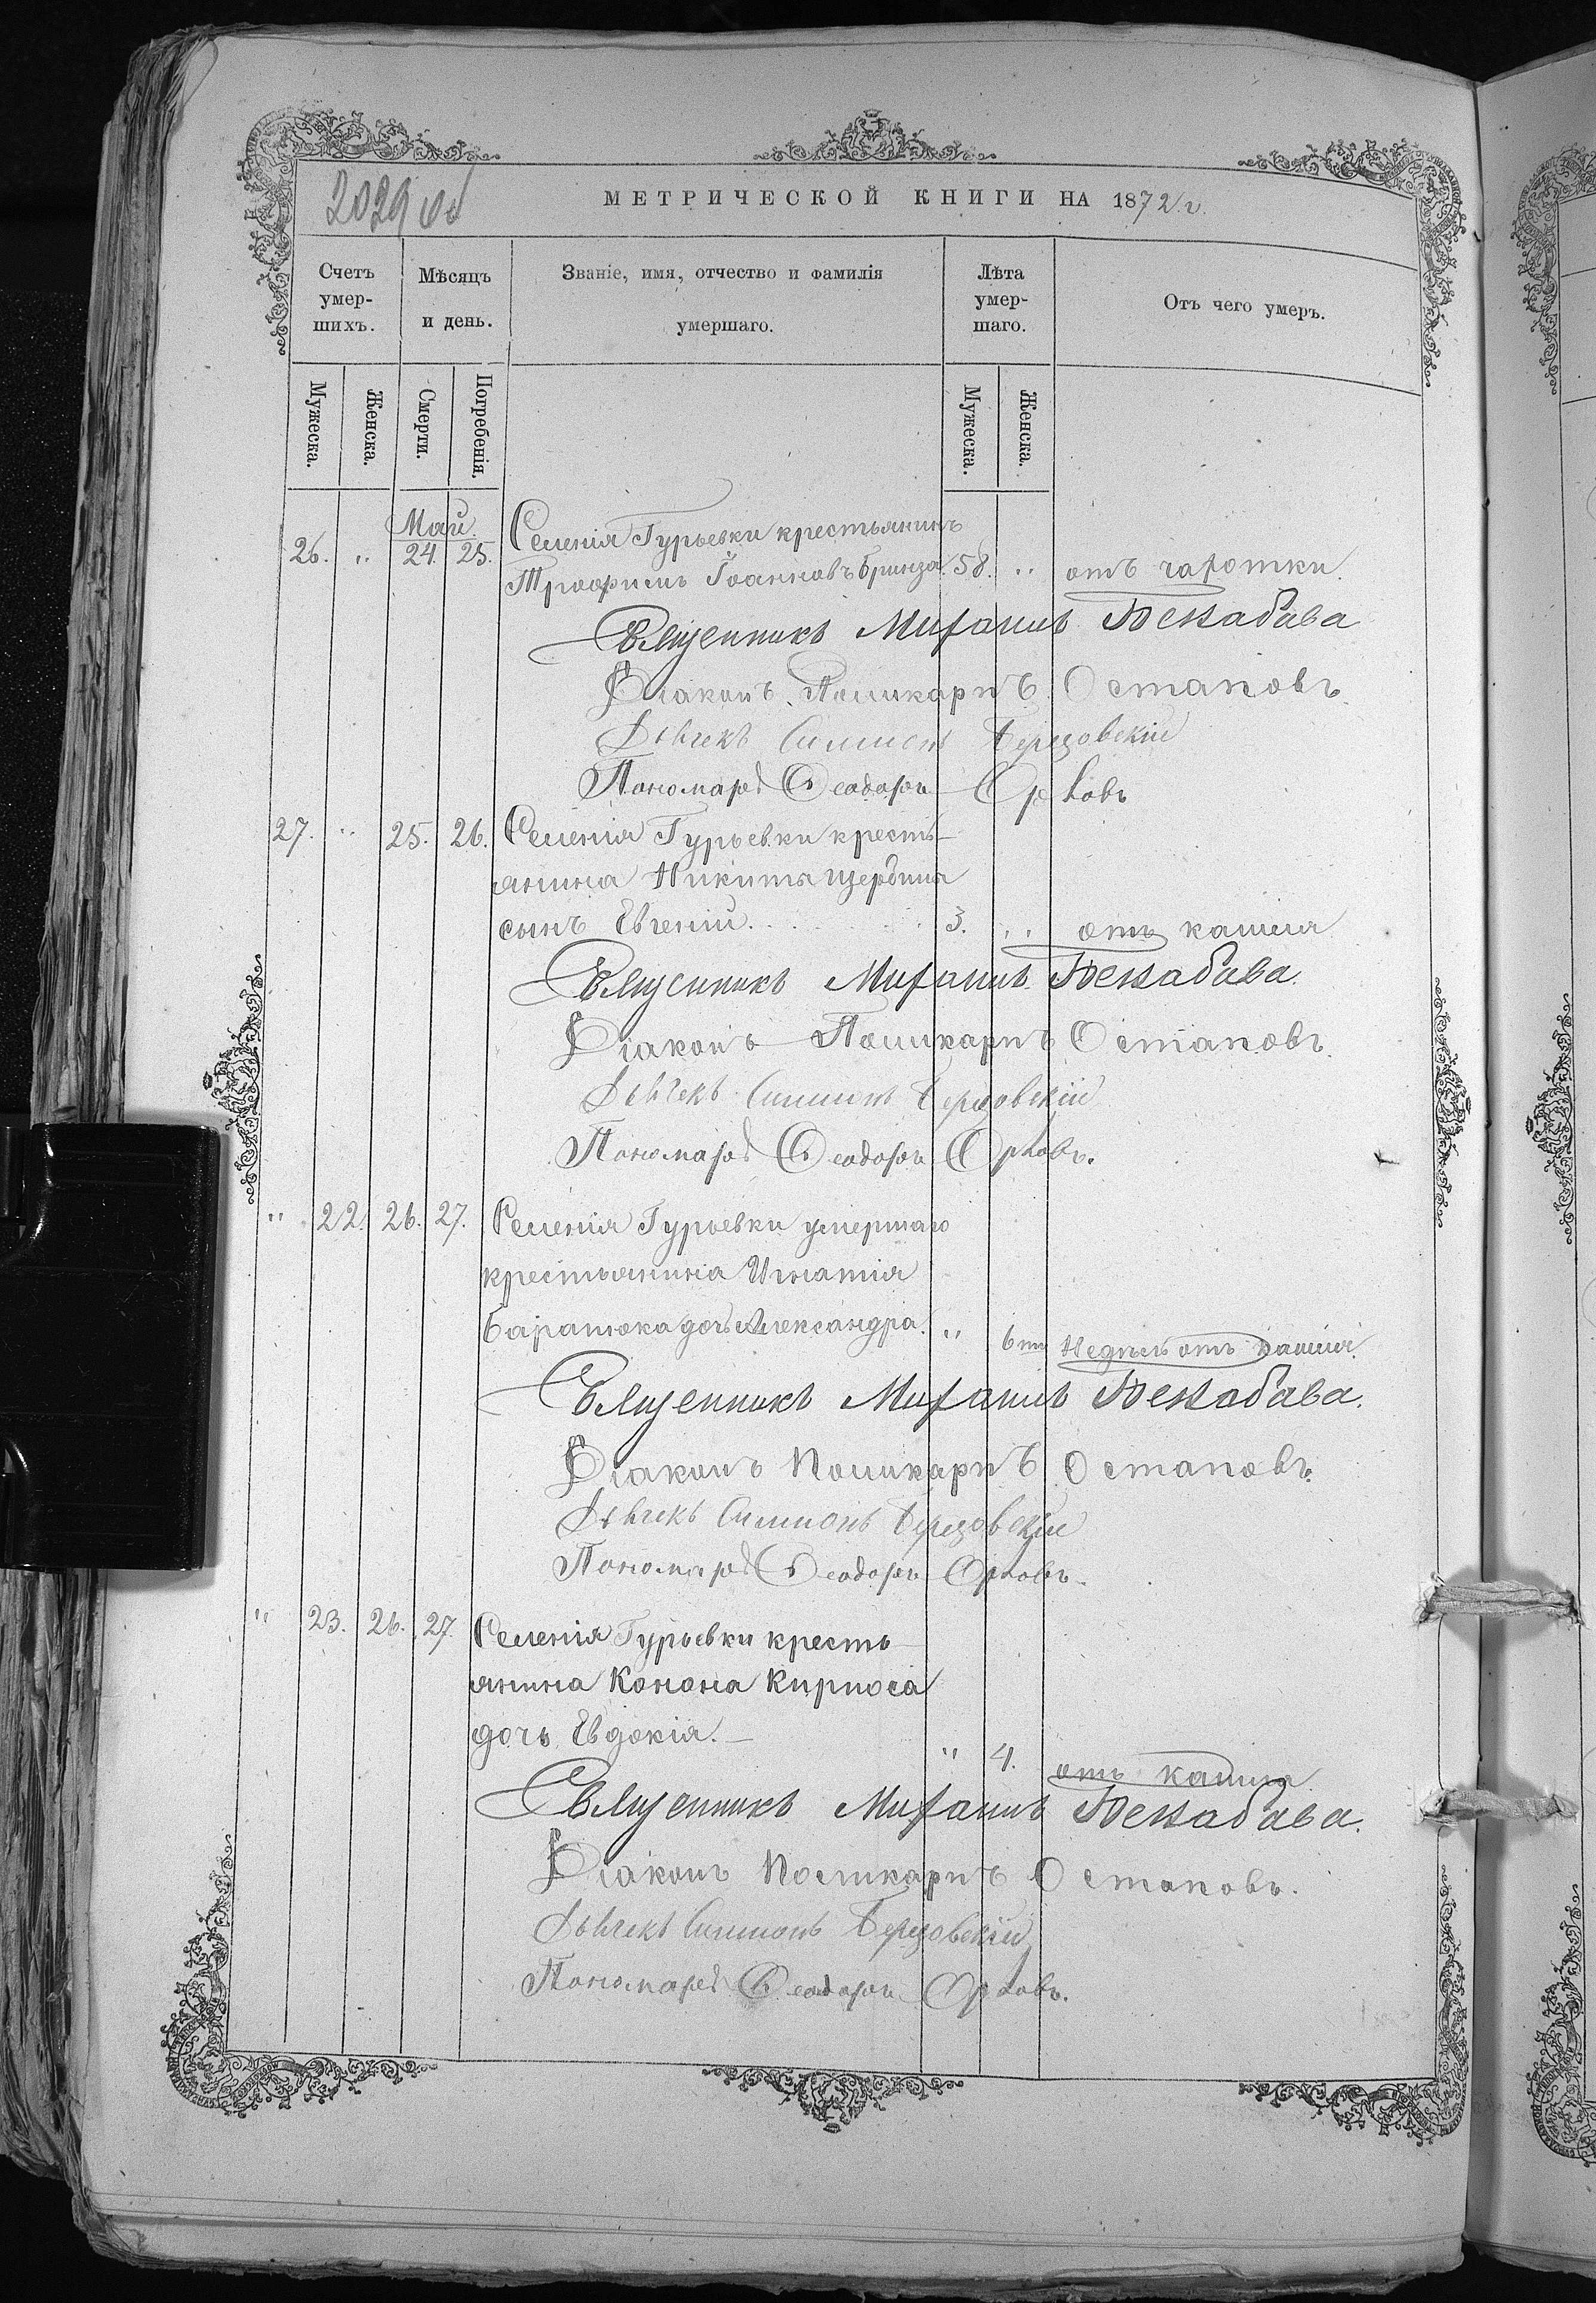 2029 об
МЕТРИЧЕСКОЙ КНИГИ НА 1872 г.
Счетъ умер-шихъ.
Мѣсяцъ и день.
Званіе, имя, отчество и фамилія умершаго.
Лѣта умер-шаго.
Отъ чего умеръ.
Мужеска.
Женска.
Смерти.
Погребенія.
Мужеска.
Женска.
Май
26. " 24. 25. Селенія Гурьевки крестьянинъ
Трофимъ Іоанновъ Бринза. 58. " отъ чахотки.
Священникъ Михаилъ
Діаконъ Поликарпъ Остаповъ.
Дьячекъ Симеонъ Березовскій
Пономарь Ѳеодоръ Орловъ
27. " 25. 26. Селенія Гурьевки кресть-
янина Никиты Щербины
сынъ Евгеній. 3. " отъ кашля
Священникъ Михаилъ
Діаконъ Поликарпъ Остаповъ.
Дьячекъ Симеонъ Березовскій
Пономарь Ѳеодоръ Орловъ.
" 22. 26. 27. Селенія Гурьевки умершаго
крестьянина Игнатія
Баратюка дочь Александра. " 6ти недѣль отъ кашля.
Священникъ Михаилъ
Діаконъ Поликарпъ Остаповъ.
Дьячекъ Симеонъ Березовскій
Пономарь Ѳеодоръ Орловъ.
" 23. 26. 27. Селенія Гурьевки кресть-
янина Конона Кирноса
дочь Евдокія. — " 4. отъ кашля.
Священникъ Михаилъ
Діаконъ Поликарпъ Остаповъ.
Дьячекъ Симеонъ Березовскій
Пономарь Ѳеодоръ Орловъ.